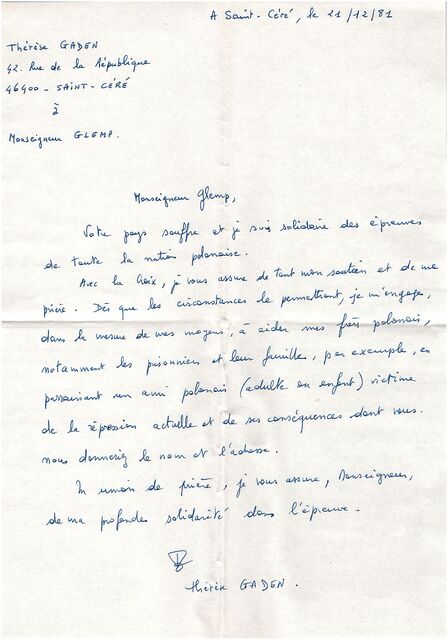 A Saint-Céré, le 21/12/81
Thérèse GADEN
42. Rue de la République
46400 - SAINT-CÉRÉ
à
Monseigneur GLEMP.
Monseigneur Glemp,
Votre pays souffre et je suis solidaire des épreuves
de toute la nation polonaise.
Avec la Croix, je vous assure de tout mon soutien et de ma
prière. Dès que les circonstances le permettront, je m'engage,
dans la mesure de mes moyens, à aider mes frères polonais,
notamment les prisonniers et leur famille, par exemple, en
parrainant un ami polonais (adulte ou enfant) victime
de la répression actuelle et de ses conséquences dont vous
nous donnerez le nom et l'adresse.
En union de prière, je vous assure, Monseigneur,
de ma profonde solidarité dans l'épreuve.
Thérèse GADEN.